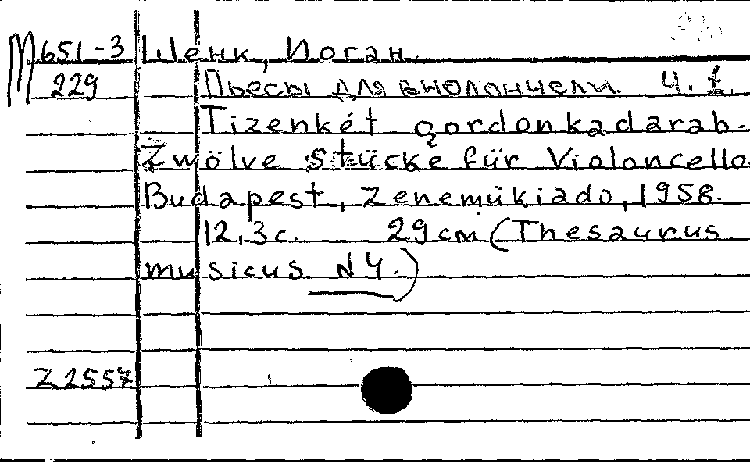 М651-3 Шенк, Иоган.
229 Пьесы для виолончели. Ч. 1.
Tizenkét gordonkadarab.
Zwölve stücke für Violoncello
Budapest, Zenemükiado, 1958.
12,3 с. 29 см (Thesaurus
musicus N 4.)
Z 2557